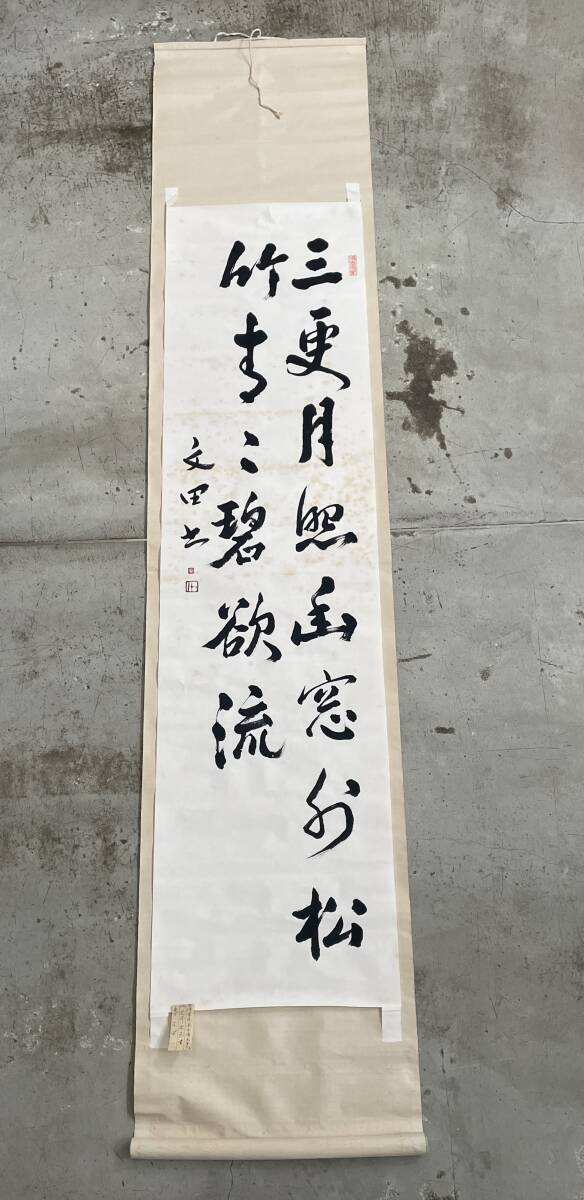 三更月照幽窓外松
竹青〻碧欲流
文田书